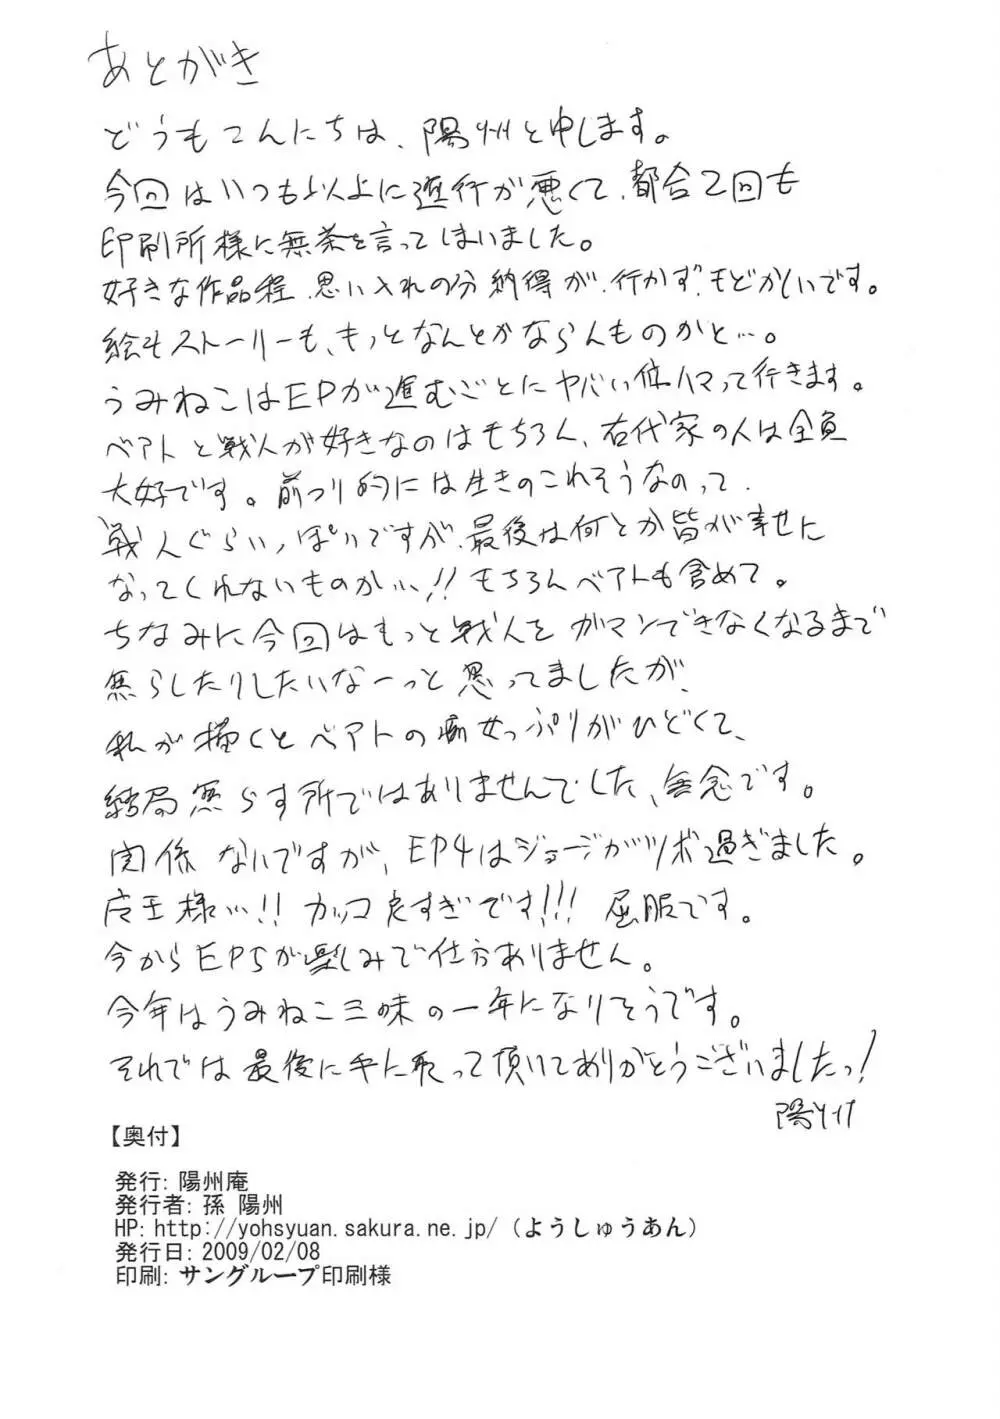 あとがき
どうもこんにちは、陽州と申します。
今回はいつも以上に進行が悪くて、都合2回も
印刷所様に無茶を言ってしまいました。
好きな作品程、思い入れの分納得が行かず、もどかしいです。
絵もストーリーも、もっとなんとかならんものかと…。
うみねこはEPが進むごとにヤバい位ハマって行きます。
ベアトと戦人が好きなのはもちろん、右代宮家の人は全員
大好です。前フリ的には生きのこれそうなのって、
戦人ぐらいっぽいですが、最後は何とか皆が幸せに
なってくれないものか…!!もちろんベアトも含めて。
ちなみに今回はもっと戦人をガマンできなくなるまで
焦らしたりしたいなーっと思ってましたが、
私が描くとベアトの痴女っぷりがひどくて、
結局焦らす所ではありませんでした、無念です。
関係ないですが、EP4はジョージがツボ過ぎました。
様…!!カッコ良すぎです!!!屈服です。
今からEP5が楽しみで仕方ありません。
今年はうみねこ三昧の一年になりそうです。
それでは最後に手に取って頂いてありがとうございましたっ!
陽州
【奥付】
発行: 陽州庵
発行者: 孫 陽州
HP: http://yohsyuan.sakura.ne.jp/（ようしゅうあん）
発行日: 2009/02/08
印刷: サングループ印刷様